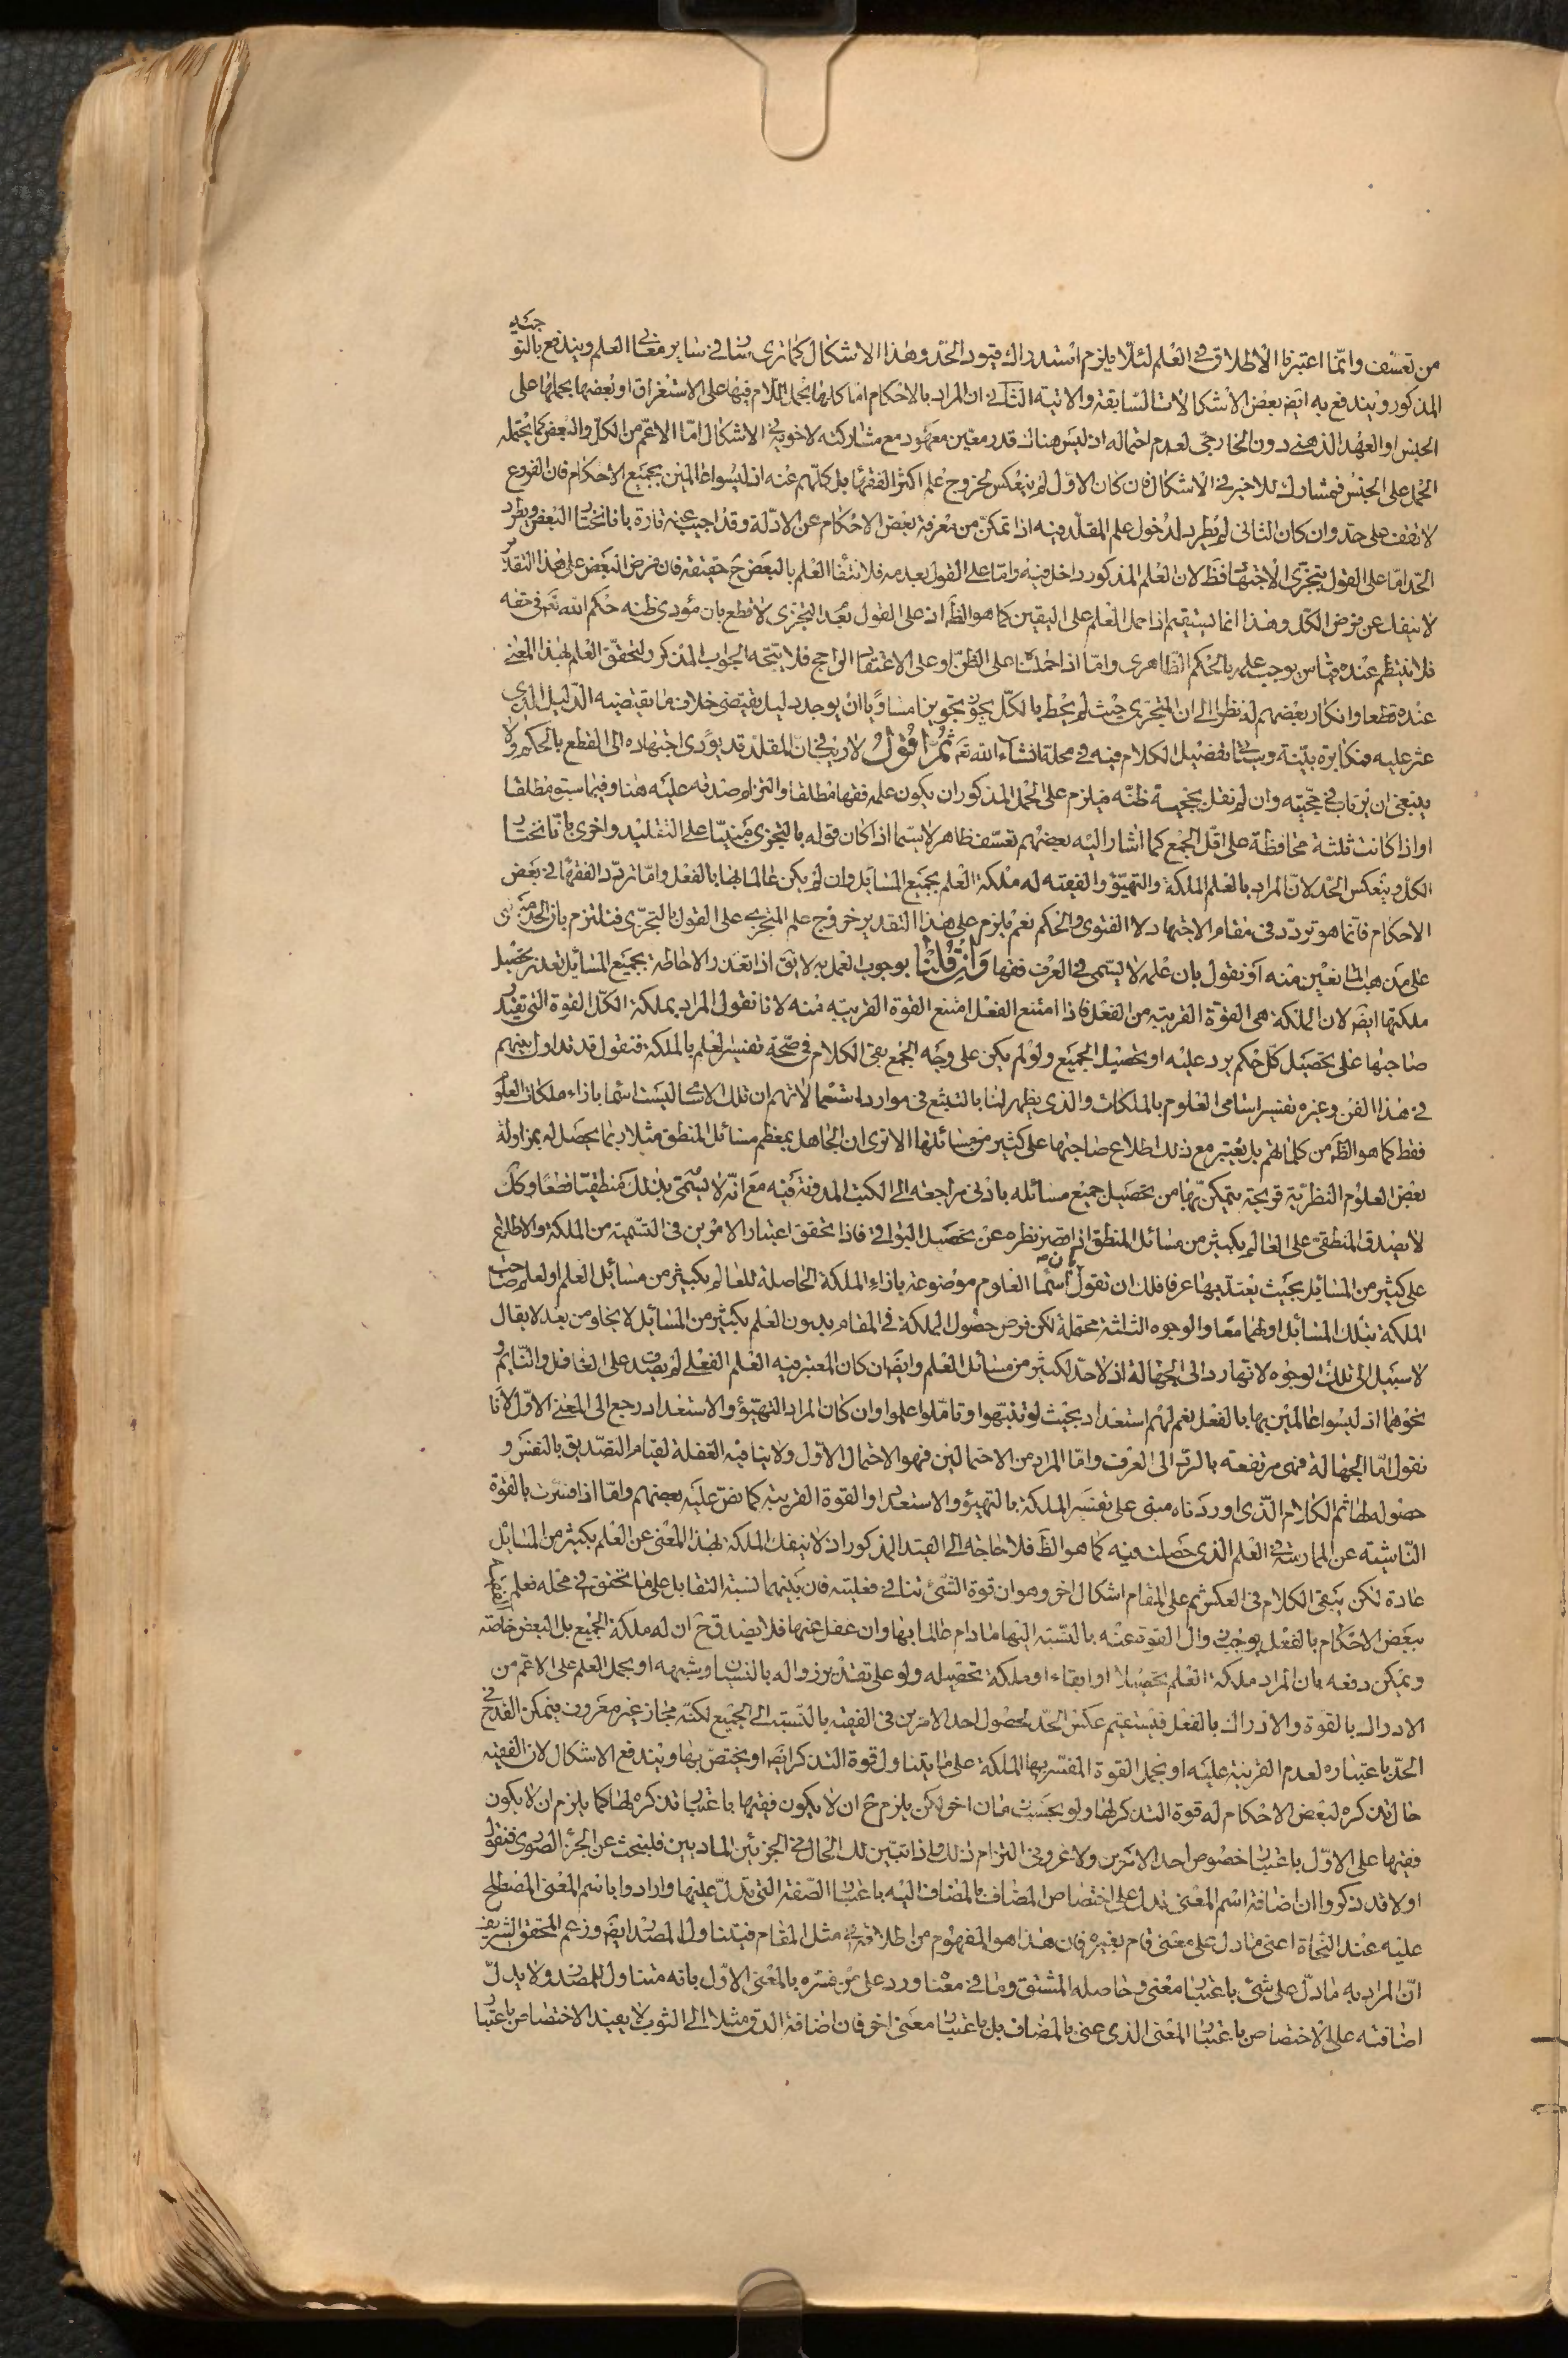 من تعسف وانما اعتبرنا الاطلاق في العلم لئلا يلزم استدراك قيود الحد وهذا الاشكال كما ترى سار في ساير معاني العلم ويندفع بالتوجيه
المذكور ويندفع به ايض بعض الاشكالات السابقة والاتية الثاني ان المراد بالاحكام اما كلها بحمل اللام فيها على الاستغراق او بعضها بحملها على
الجنس او العهد الذهني دون الخارجي لعدم احتماله اذ ليس هناك قدر معين معهود مع مشاركته لاخويه في الاشكال اما الاعم من الكل والبعض كما يحتمله
الحمل على الجنس فمشارك للاخير في الاشكال فان كان الاول لم ينعكس لخروج علم اكثر الفقهاء بل كلهم عنه اذ ليسوا عالمين بجميع الاحكام فان الفروع
لا تقف على حد وان كان الثاني لم يطرد لدخول علم المقلد فيه اذا تمكن من معرفة بعض الاحكام عن الادلة وقد اجيب عنه تارة بانا نختار البعض ويطرد
الحد اما على القول بتجزي الاجتهاد فظ لان العلم المذكور داخل فيه واما على القول بعدمه فلانتفاء العلم بالبعض ح حقيقة فان فرض البعض على هذا التقدير
لا ينفك عن فرض الكل وهذا انما يستقيم اذا حمل العلم على اليقين كما هو الظ اذ على القول بعدم التجزي لا قطع بان مؤدى ظنه حكم الله تع في حقه
فلا ينتظم عنده قياس يوجب علمه بالحكم الظاهري واما اذا حملناه على الظن او على الاعتقاد الراجح فلا يتجه الجواب المذكور لتحقق العلم بهذا المعنى
عنده قطعا وانكار بعضهم له نظرا الى ان المتجزي حيث لم يحط بالكل يجوز تجويزا مساويا ان يوجد دليل يقتضي خلاف ما يقتضيه الدليل الذي
عثر عليه مكابرة بينة وسيأتي تفصيل الكلام فيه في محله انشاء الله تع ثم اقول لا ريب في ان المقلد قد يؤدى اجتهاده الى القطع بالحكم ولا
ينبغي ان يرتاب في حجيته وان لم نقل بحجية ظنه فيلزم على الحمل المذكور ان يكون علمه فقها مطلقا والتزام صدقه عليه هنا وفيما سبق مطلقا
او اذا كانت ثلثة محافظة على اقل الجمع كما اشار اليه بعضهم تعسف ظاهر لا سيما اذا كان قوله بالتجزي مبنيا على التقليد واخرى بانا نختار
الكل وينعكس الحد لان المراد بالعلم الملكة والتهيؤ والفقيه له ملكة العلم بجميع المسائل وان لم يكن عالما بها بالفعل واما تردد الفقهاء في بعض
الاحكام فانما هو تردد في مقام الاجتهاد لا الفتوى والحكم نعم يلزم على هذا التقدير خروج علم المتجزي على القول بالتجزي فنلتزم بان الحد مبني
على مذهب المانعين منه او نقول بان علمه لا يسمى في العرف فقها وان قلنا بوجوب العمل به لا يق اذا تعذر الاحاطة بجميع المسائل تعذر تحصيل
ملكتها ايض لان الملكة هي القوة القريبة من الفعل فاذا امتنع الفعل امتنع القوة القريبة منه لانا نقول المراد بملكة الكل القوة التي يقتدر
صاحبها على تحصيل كل حكم يرد عليه او تحصيل الجميع ولو لم يكن على وجه الجمع بقى الكلام في صحة تفسير العلم بالملكة فنقول قد تداول بينهم
في هذا الفن وغيره تفسير اسامي العلوم بالملكات والذي يظهر لنا بالتتبع في موارد استعمالاتهم ان تلك الاسامي ليست اسما بازاء ملكات العلوم
فقط كما هو الظ من كلماتهم بل يعتبر مع ذلك اطلاع صاحبها على كثير من مسائلها الا ترى ان الجاهل بمعظم مسائل المنطق مثلا ربما يحصل له بمزاولة
بعض العلوم النظرية قريحة يتمكن بها من تحصيل جميع مسائله بادنى مراجعة الى الكتب المدونة فيه مع انه لا يسمى بذلك منطقيا قطعا وكك
لا يصدق المنطقي على العالم بكثير من مسائل المنطق اذا قصر نظره عن تحصيل البواقي فاذا تحقق اعتبار الامرين في التسمية من الملكة والاطلاع
على كثير من المسائل بحيث يعتد بها عرفا فلك ان تقول ان اسماء العلوم موضوعة بازاء الملكة الحاصلة للعالم بكثير من مسائل العلم او لعلم صاحب
الملكة بتلك المسائل او لهما معا والوجوه الثلثة محتملة لكن فرض حصول الملكة في المقام بدون العلم بكثير من المسائل لا يخلو من بعد لا يقال
لا سبيل الى تلك الوجوه لانها رد الى الجهالة اذ لا حد لكثير من مسائل العلم وايض ان كان المعتبر فيه العلم الفعلي لم يصدق على الغافل والنايم و
نحوهما اذ ليسوا عالمين بها بالفعل نعم لهم استعداد بحيث لو تنبهوا وتاملوا علموا وان كان المراد التهيؤ والاستعداد رجع الى المعنى الاول لانا
نقول اما الجهالة فهي مرتفعة بالرد الى العرف واما المراد من الاحتمالين فهو الاحتمال الاول ولا ينافيه الغفلة لقيام التصديق بالنفس و
حصوله لها ثم الكلام الذي اوردناه مبني على تفسير الملكة بالتهيؤ والاستعداد او القوة القريبة كما نص عليه بعضهم واما اذا فسرت بالقوة
الناشية عن الممارسة في العلم الذي حصلت فيه كما هو الظ فلا حاجة الى القيد المذكور اذ لا ينفك الملكة بهذا المعنى عن العلم بكثير من المسائل
عادة لكن يبقى الكلام في العكس ثم على المقام اشكال اخر وهو ان قوة الشئ تنافي فعليته فان بينهما نسبة التقابل على ما تحقق في محله فعلم الفقيه
ببعض الاحكام بالفعل يوجب زوال القوة عنه بالنسبة اليها ما دام عالما بها وان غفل عنها فلا يصدق ح ان له ملكة الجميع بل البعض خاصة
ويمكن دفعه بان المراد ملكة العلم تحصيلا او ابقاء او ملكة تحصيله ولو على تقدير زواله بالنسيان وشبهه او يحمل العلم على الاعم من
الادراك بالقوة والادراك بالفعل فيستقيم عكس الحد لحصول احد الامرين في الفقيه بالنسبة الى الجميع لكنه مجاز غير معروف فيمكن القدح في
الحد باعتباره لعدم القرينة عليه او بحمل القوة المفسر بها الملكة على ما يتناول قوة التذكر ايض او يختص بها ويندفع الاشكال لان الفقيه
حال تذكره لبعض الاحكام له قوة التذكر لها ولو بحسب زمان اخر لكن يلزم ح ان لا يكون فقيها باعتبار تذكره لها كما يلزم ان لا يكون
فقيها على الاول باعتبار خصوص احد الامرين ولا غرو في التزام ذلك واذا تبين لك الحال في الجزئين الماديين فلنبحث عن الجزء الصوري فنقول
اولا قد ذكروا ان اضافة اسم المعنى تدل على اختصاص المضاف بالمضاف اليه باعتبار الصفة التي تدل عليها وارادوا باسم المعنى المصطلح
عليه عند النحاة اعني ما دل على معنى قام بغيره فان هذا هو المفهوم من اطلاقه في مثل المقام فيتناول المصدر ايض وزعم المحقق الشريف
ان المراد به ما دل على شئ باعتبار معنى وحاصله المشتق وما في معناه ورد على من فسره بالمعنى الاول بانه متناول للمصدر ولا يدل
اضافته على الاختصاص باعتبار المعنى الذي عنى بالمضاف بل باعتبار معنى اخر فان اضافة الدق مثلا الى الثوب لا يفيد الاختصاص باعتبار